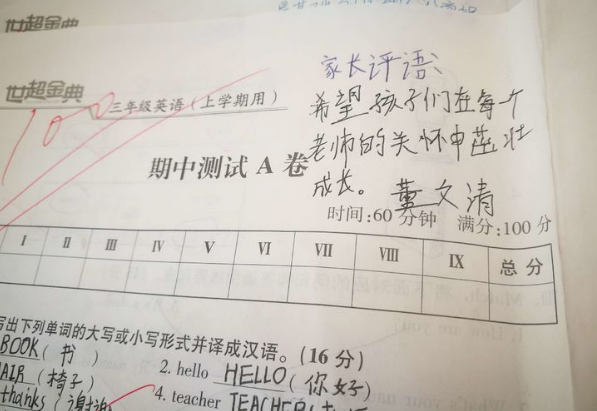 世超金典
家长评语:
世超金典
三年级英语(上学期用)
希望孩子们在每个
100
老师的关怀中茁壮
期中测试 A 卷
成长。 董文清
时间:60 分钟 满分:100 分
I II III IV V VI VII VIII IX 总分
写出下列单词的大写或小写形式并译成汉语。(16 分)
BOOK(书) 2. hello HELLO(你好)
HAIR(椅子)
thanks(谢谢 4. teacher TEACHER(